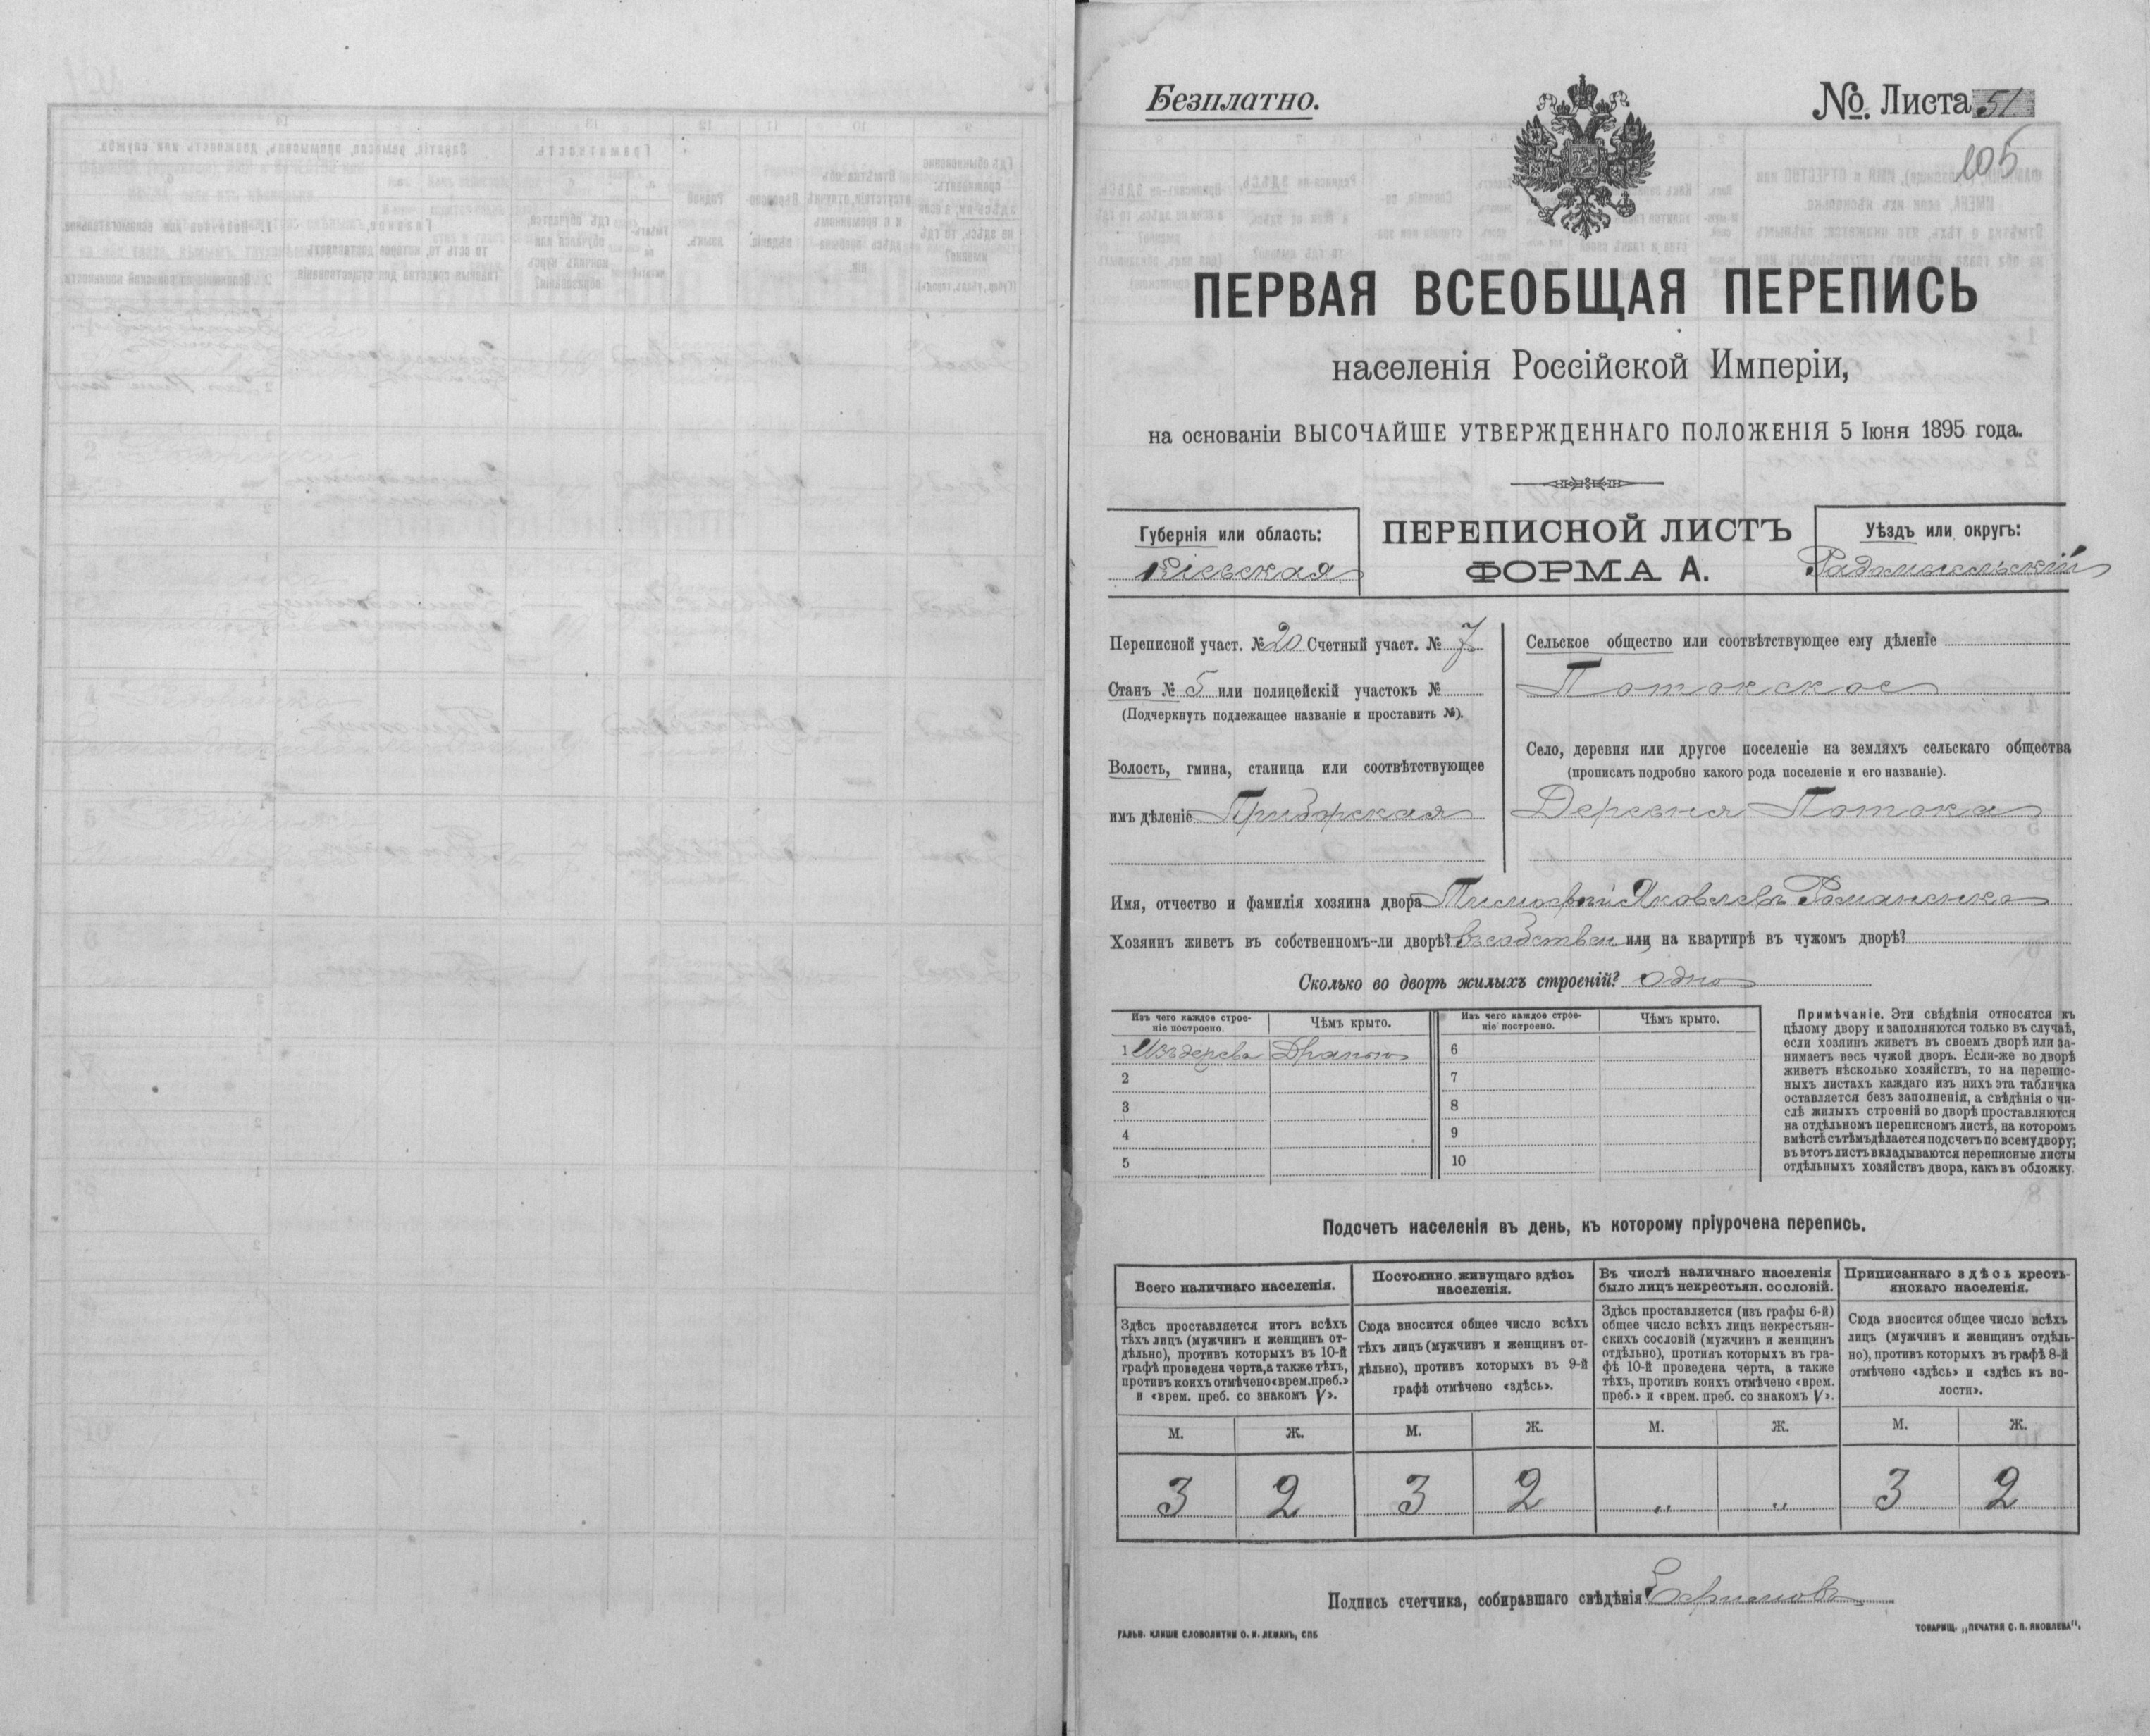 Безплатно.
№. Листа 51
105
ПЕРВАЯ ВСЕОБЩАЯ ПЕРЕПИСЬ
населенія Россійской Имперіи,
на основаніи ВЫСОЧАЙШЕ УТВЕРЖДЕННАГО ПОЛОЖЕНІЯ 5 Іюня 1895 года.
Губернія или область:
Кіевская
ПЕРЕПИСНОЙ ЛИСТЪ
ФОРМА А.
Уѣздъ или округъ:
Радомысльскій
Переписной участ. № 20 Счетный участ. № 7
Станъ № 5 или полицейскій участокъ №
(Подчеркнуть подлежащее названіе и проставить №).
Волость, гмина, станица или соотвѣтствующее
имъ дѣленіе Приборская
Сельское общество или соотвѣтствующее ему дѣленіе
Потокское
Село, деревня или другое поселеніе на земляхъ сельскаго общества
(прописать подробно какого рода поселеніе и его названіе).
Деревня Потока
Имя, отчество и фамилія хозяина двора Тимофей Яковлевъ Романенко
Хозяинъ живетъ въ собственномъ-ли дворѣ? въ собствен или, на квартирѣ въ чужомъ дворѣ?
Сколько во дворѣ жилыхъ строеній? одно
Изъ чего каждое строе-
ніе построено.
Чѣмъ крыто.
Изъ чего каждое строе-
ніе построено.
Чѣмъ крыто.
1 Изъ дерева Дранью
2
3
4
5
6
7
8
9
10
Примѣчаніе. Эти свѣдѣнія относятся къ
цѣлому двору и заполняются только въ случаѣ,
если хозяинъ живетъ въ своемъ дворѣ или за-
нимаетъ весь чужой дворъ. Если-же во дворѣ
живетъ нѣсколько хозяйствъ, то на перепис-
ныхъ листахъ каждаго изъ нихъ эта табличка
оставляется безъ заполненія, а свѣдѣнія о чи-
слѣ жилыхъ строеній во дворѣ проставляются
на отдѣльномъ переписномъ листѣ, на которомъ
вмѣстѣ съ тѣмъ дѣлается подсчетъ по всему двору;
въ этотъ листъ вкладываются переписные листы
отдѣльныхъ хозяйствъ двора, какъ въ обложку.
Подсчетъ населенія въ день, къ которому пріурочена перепись.
Всего наличнаго населенія.
Здѣсь проставляется итогъ всѣхъ
тѣхъ лицъ (мужчинъ и женщинъ от-
дѣльно), противъ которыхъ въ 10-й
графѣ проведена черта, а также тѣхъ,
противъ коихъ отмѣчено «врем. преб.»
и «врем. преб. со знакомъ V».
Постоянно живущаго здѣсь
населенія.
Сюда вносится общее число всѣхъ
тѣхъ лицъ (мужчинъ и женщинъ от-
дѣльно), противъ которыхъ въ 9-й
графѣ отмѣчено «здѣсь».
Въ числѣ наличнаго населенія
было лицъ некрестьян. сословій.
Здѣсь проставляется (изъ графы 6-й)
общее число всѣхъ лицъ некрестьян-
скихъ сословій (мужчинъ и женщинъ
отдѣльно), противъ которыхъ въ гра-
фѣ 10-й проведена черта, а также
тѣхъ, противъ коихъ отмѣчено «врем.
преб.» и «врем. преб. со знакомъ V».
Приписаннаго здѣсь кресть-
янскаго населенія.
Сюда вносится общее число всѣхъ
лицъ (мужчинъ и женщинъ отдѣль-
но), противъ которыхъ въ графѣ 8-й
отмѣчено «здѣсь» и «здѣсь къ во-
лости».
М. Ж. М. Ж. М. Ж. М. Ж.
3 2 3 2 „ „ 3 2
Подпись счетчика, собиравшаго свѣдѣнія Ефимовъ
ГАЛЬВ. КЛИШЕ СЛОВОЛИТНИ О. И. ЛЕМАНЪ, СПБ
ТОВАРИЩ. „ПЕЧАТНЯ С. П. ЯКОВЛЕВА".